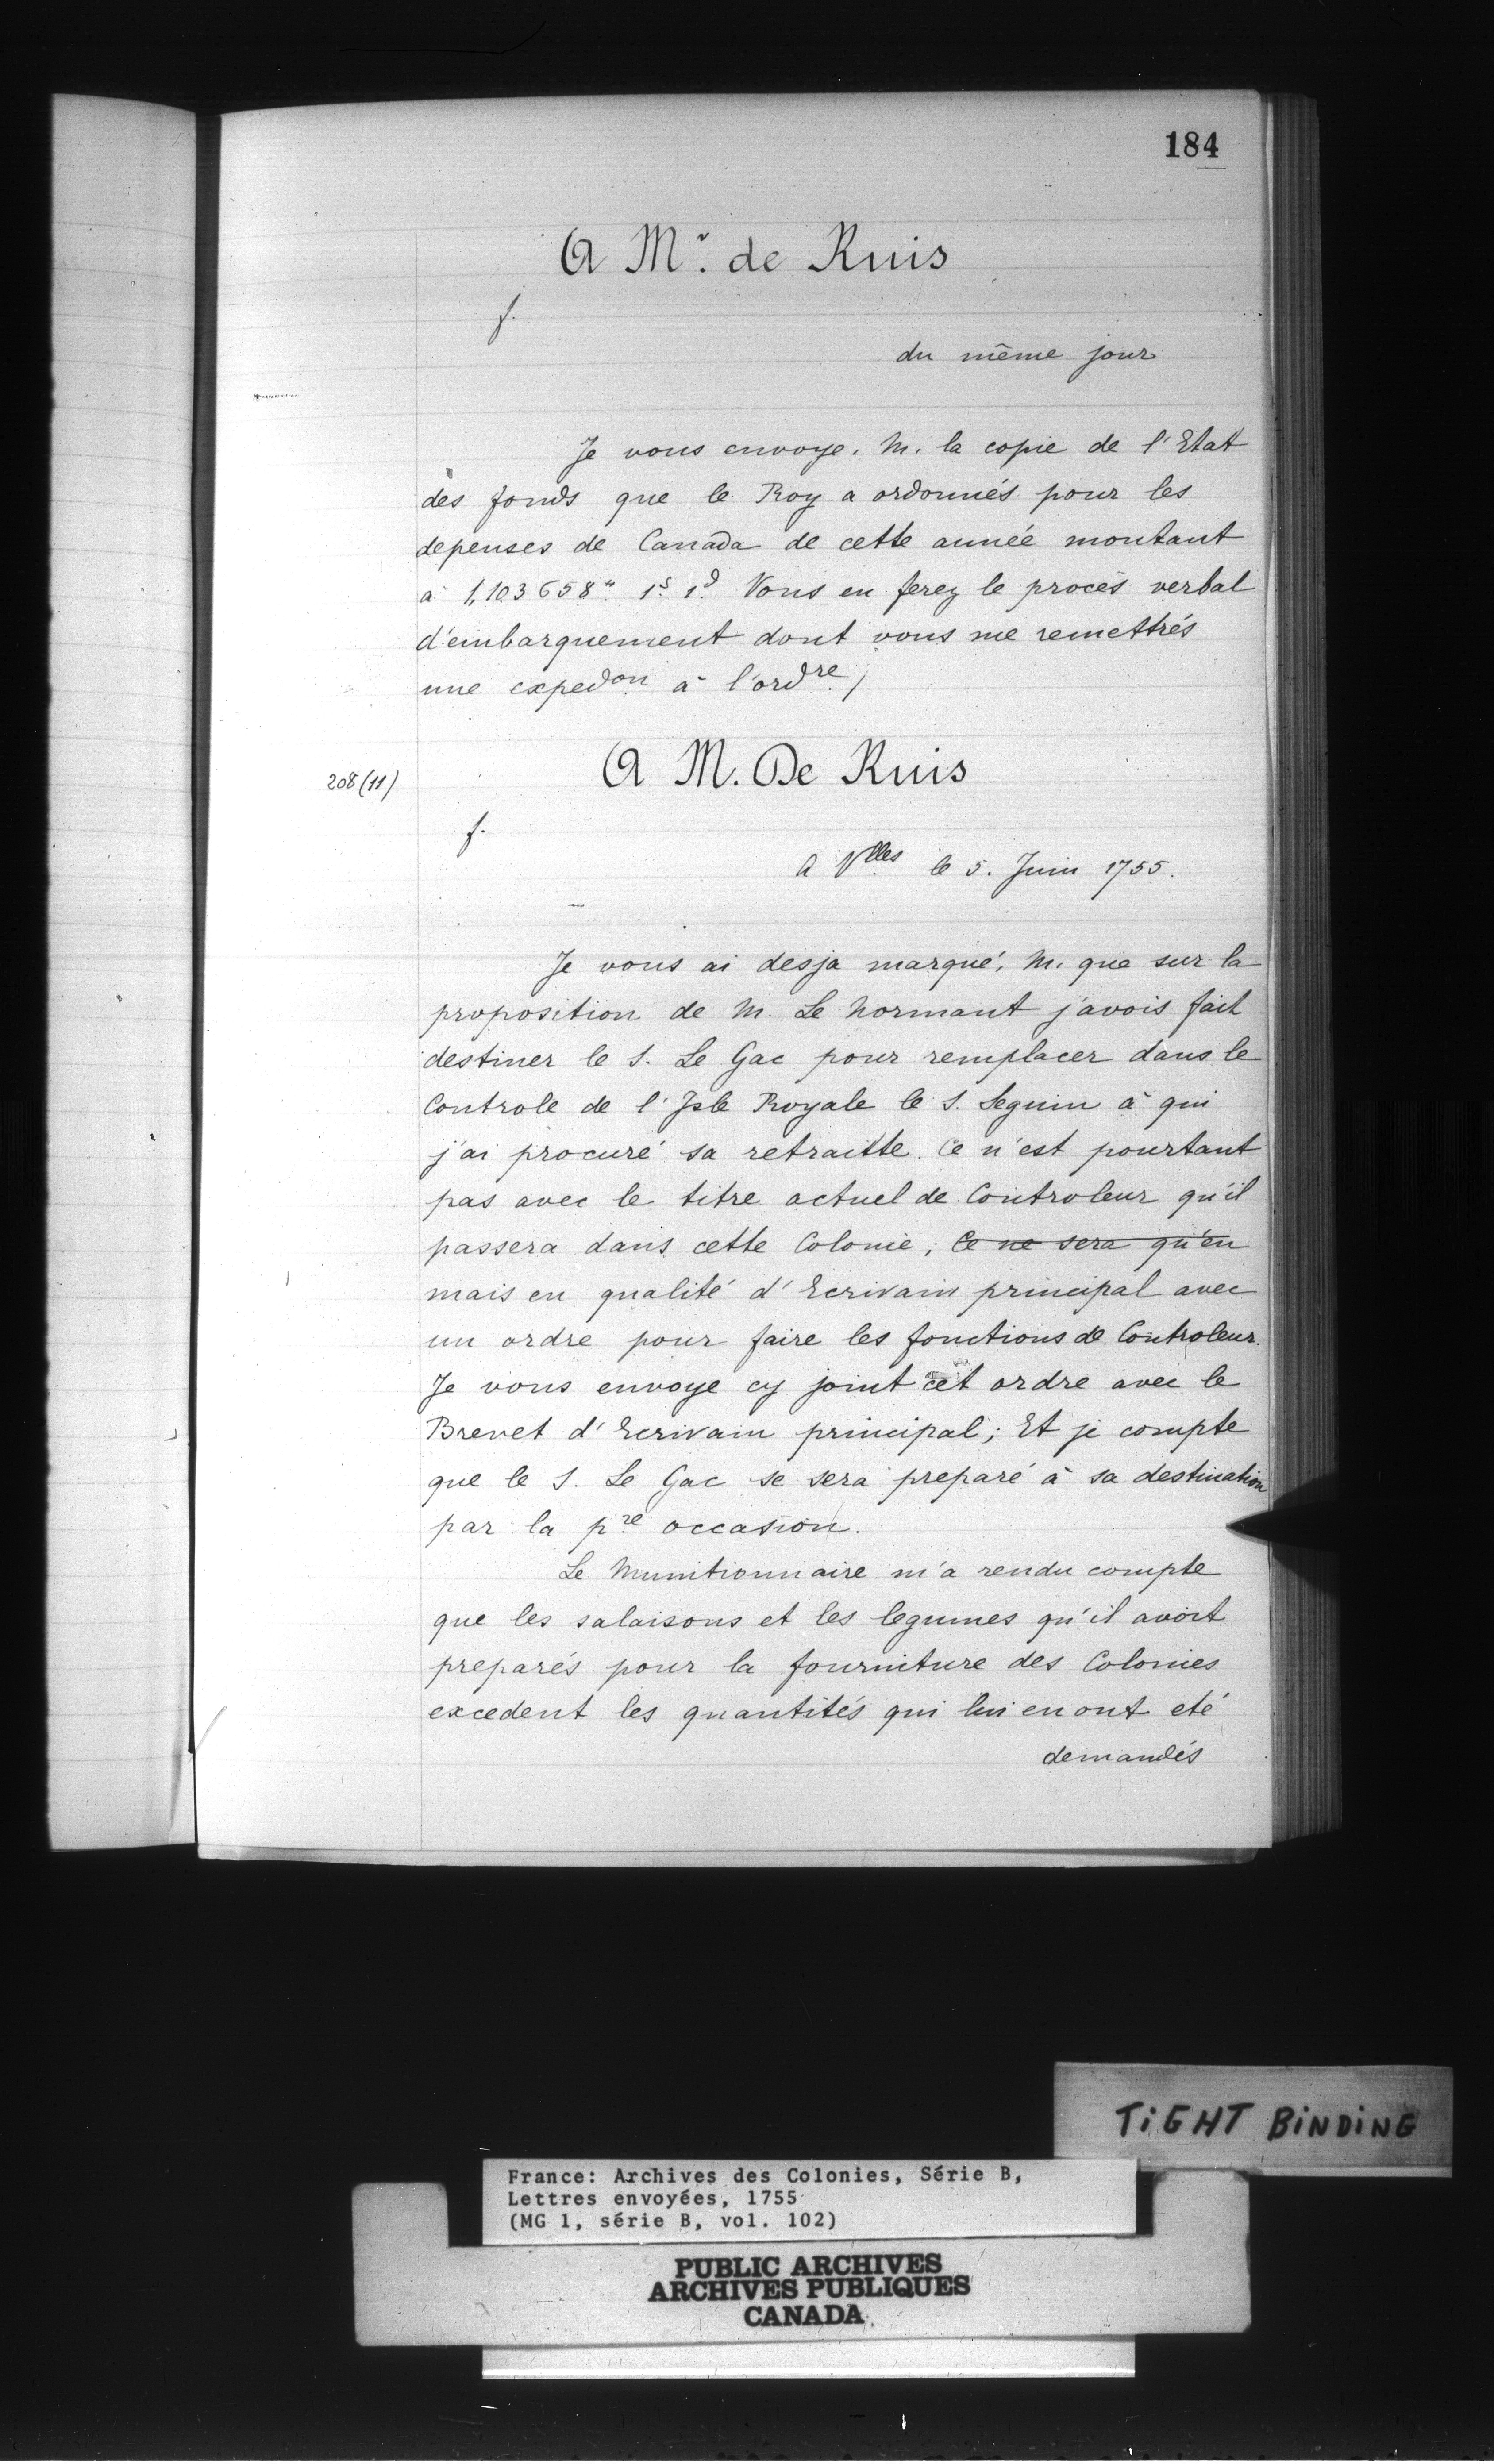 184
A Mr. de Ruis
f.
du même jour
Je vous envoye. M. la copie de l'Etat
des fonds que le Roy a ordonnés pour les
depenses de Canada de cette année montant
a 1,103658" 1s. 1d. Vous en ferez le procés verbal
d'embarquement dont vous me remettrés
une expedon à l'ordre /
208 (11)
A M. De Ruis
f.
A Vlles le 5. Juin 1755.
Je vous ai desja marqué, M. que sur la
proposition de M. Le Normant j'avois fait
destiner le S. Le Gac pour remplacer dans le
Controle de l'Isle Royale le S. Seguin à qui
j'ai procuré sa retraitte. Ce n'est pourtant
pas avec le titre actuel de Controleur qu'il
passera dans cette Colonie; Ce ne sera qu'en
mais en qualité d'Ecrivain principal avec
un ordre pour faire les fonctions de Controleur.
Je vous envoye cy joint cet ordre avec le
Brevet d'Ecrivain principal; Et je compte
que le S. Le Gac se sera preparé à sa destination
par la pre occasion.
Le Munitionnaire m'a rendu compte
que les salaisons et les legumes qu'il avoit
preparés pour la fourniture des Colonies
excedent les quantités qui lui en ont eté
demandés
TIGHT BINDING
France: Archives des Colonies, Série B,
Lettres envoyées, 1755
(MG 1, série B, vol. 102)
PUBLIC ARCHIVES
ARCHIVES PUBLIQUES
CANADA